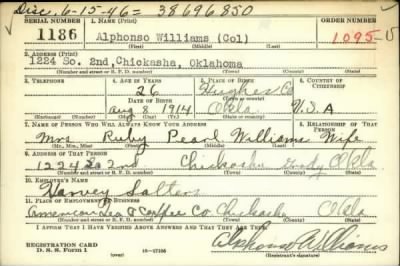 Disc. 6-15-46= 38696850
SERIAL NUMBER 1. NAME (Print) ORDER NUMBER
1186 Alphonso Williams (Col) 1095
(First) (Middle) (Last)
2. ADDRESS (Print)
1224 So. 2nd, Chickasha, Oklahoma
(Number and street or R. F. D. number) (Town) (County) (State)
3. TELEPHONE 4. AGE IN YEARS 5. PLACE OF BIRTH 6. COUNTRY OF CITIZENSHIP
26 Hughes Co
DATE OF BIRTH (Town or county)
Aug 8 1914 Okla. U.S.A
(Mo.) (Day) (Yr.) (State or country)
7. NAME OF PERSON WHO WILL ALWAYS KNOW YOUR ADDRESS 8. RELATIONSHIP OF THAT PERSON
Mrs. Ruby Pearl Williams Wife
(Mr., Mrs., Miss) (First) (Middle) (Last)
9. ADDRESS OF THAT PERSON
1224 So 2nd Chickasha Grady Okla
(Number and street or R. F. D. number) (Town) (County) (State)
10. EMPLOYER'S NAME
Harvey Salters
11. PLACE OF EMPLOYMENT OR BUSINESS
American Tea & Coffee Co Chickasha Okla
(Number and street or R. F. D. number) (Town) (County) (State)
I AFFIRM THAT I HAVE VERIFIED ABOVE ANSWERS AND THAT THEY ARE TRUE.
REGISTRATION CARD
D. S. S. Form 1 (over) Alphonso Williams
(Registrant's signature)